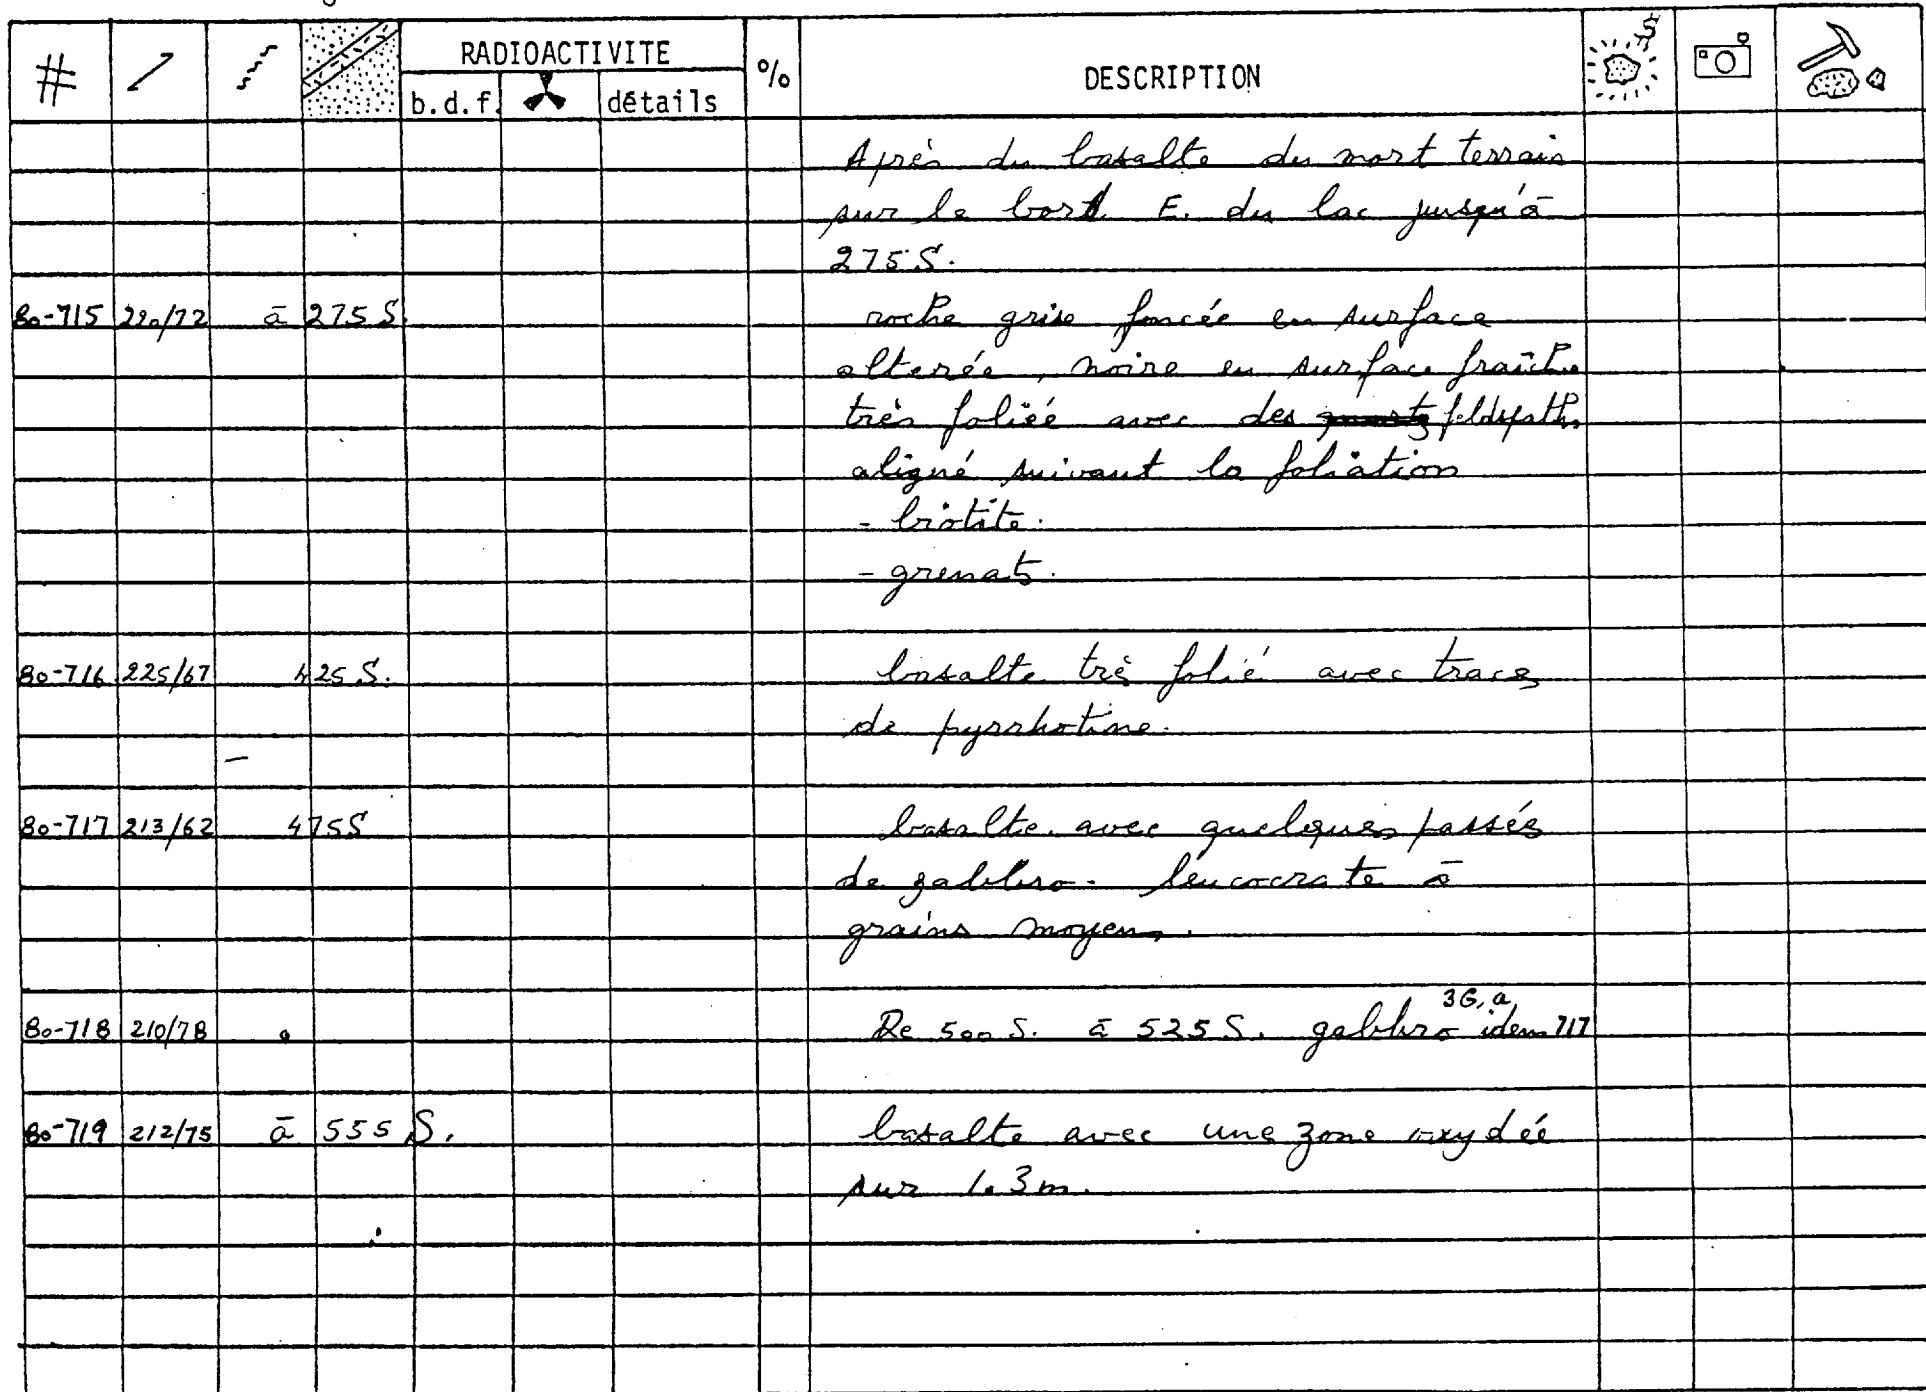 # RADIOACTIVITE % DESCRIPTION
b.d.f. détails
Après du basalte du mort terrain
sur le bord E. du lac jusqu'à
275 S.
80-715 220/72 à 275 S. roche grise foncée en surface
alterée, noire en surface fraîche
très foliée avec des feldspath.
aligné suivant la foliation
- biotite.
- grenats.
80-716 225/67 425 S. basalte très folié avec traces
de pyrrhotine.
80-717 213/62 475 S basalte avec quelques passés
de gabbro - leucocrate à
grains moyens.
3G, a
80-718 210/78 De 500 S. à 525 S. gabbro idem 717
80-719 212/75 à 555 S. basalte avec une zone oxydée
sur 1.3m.